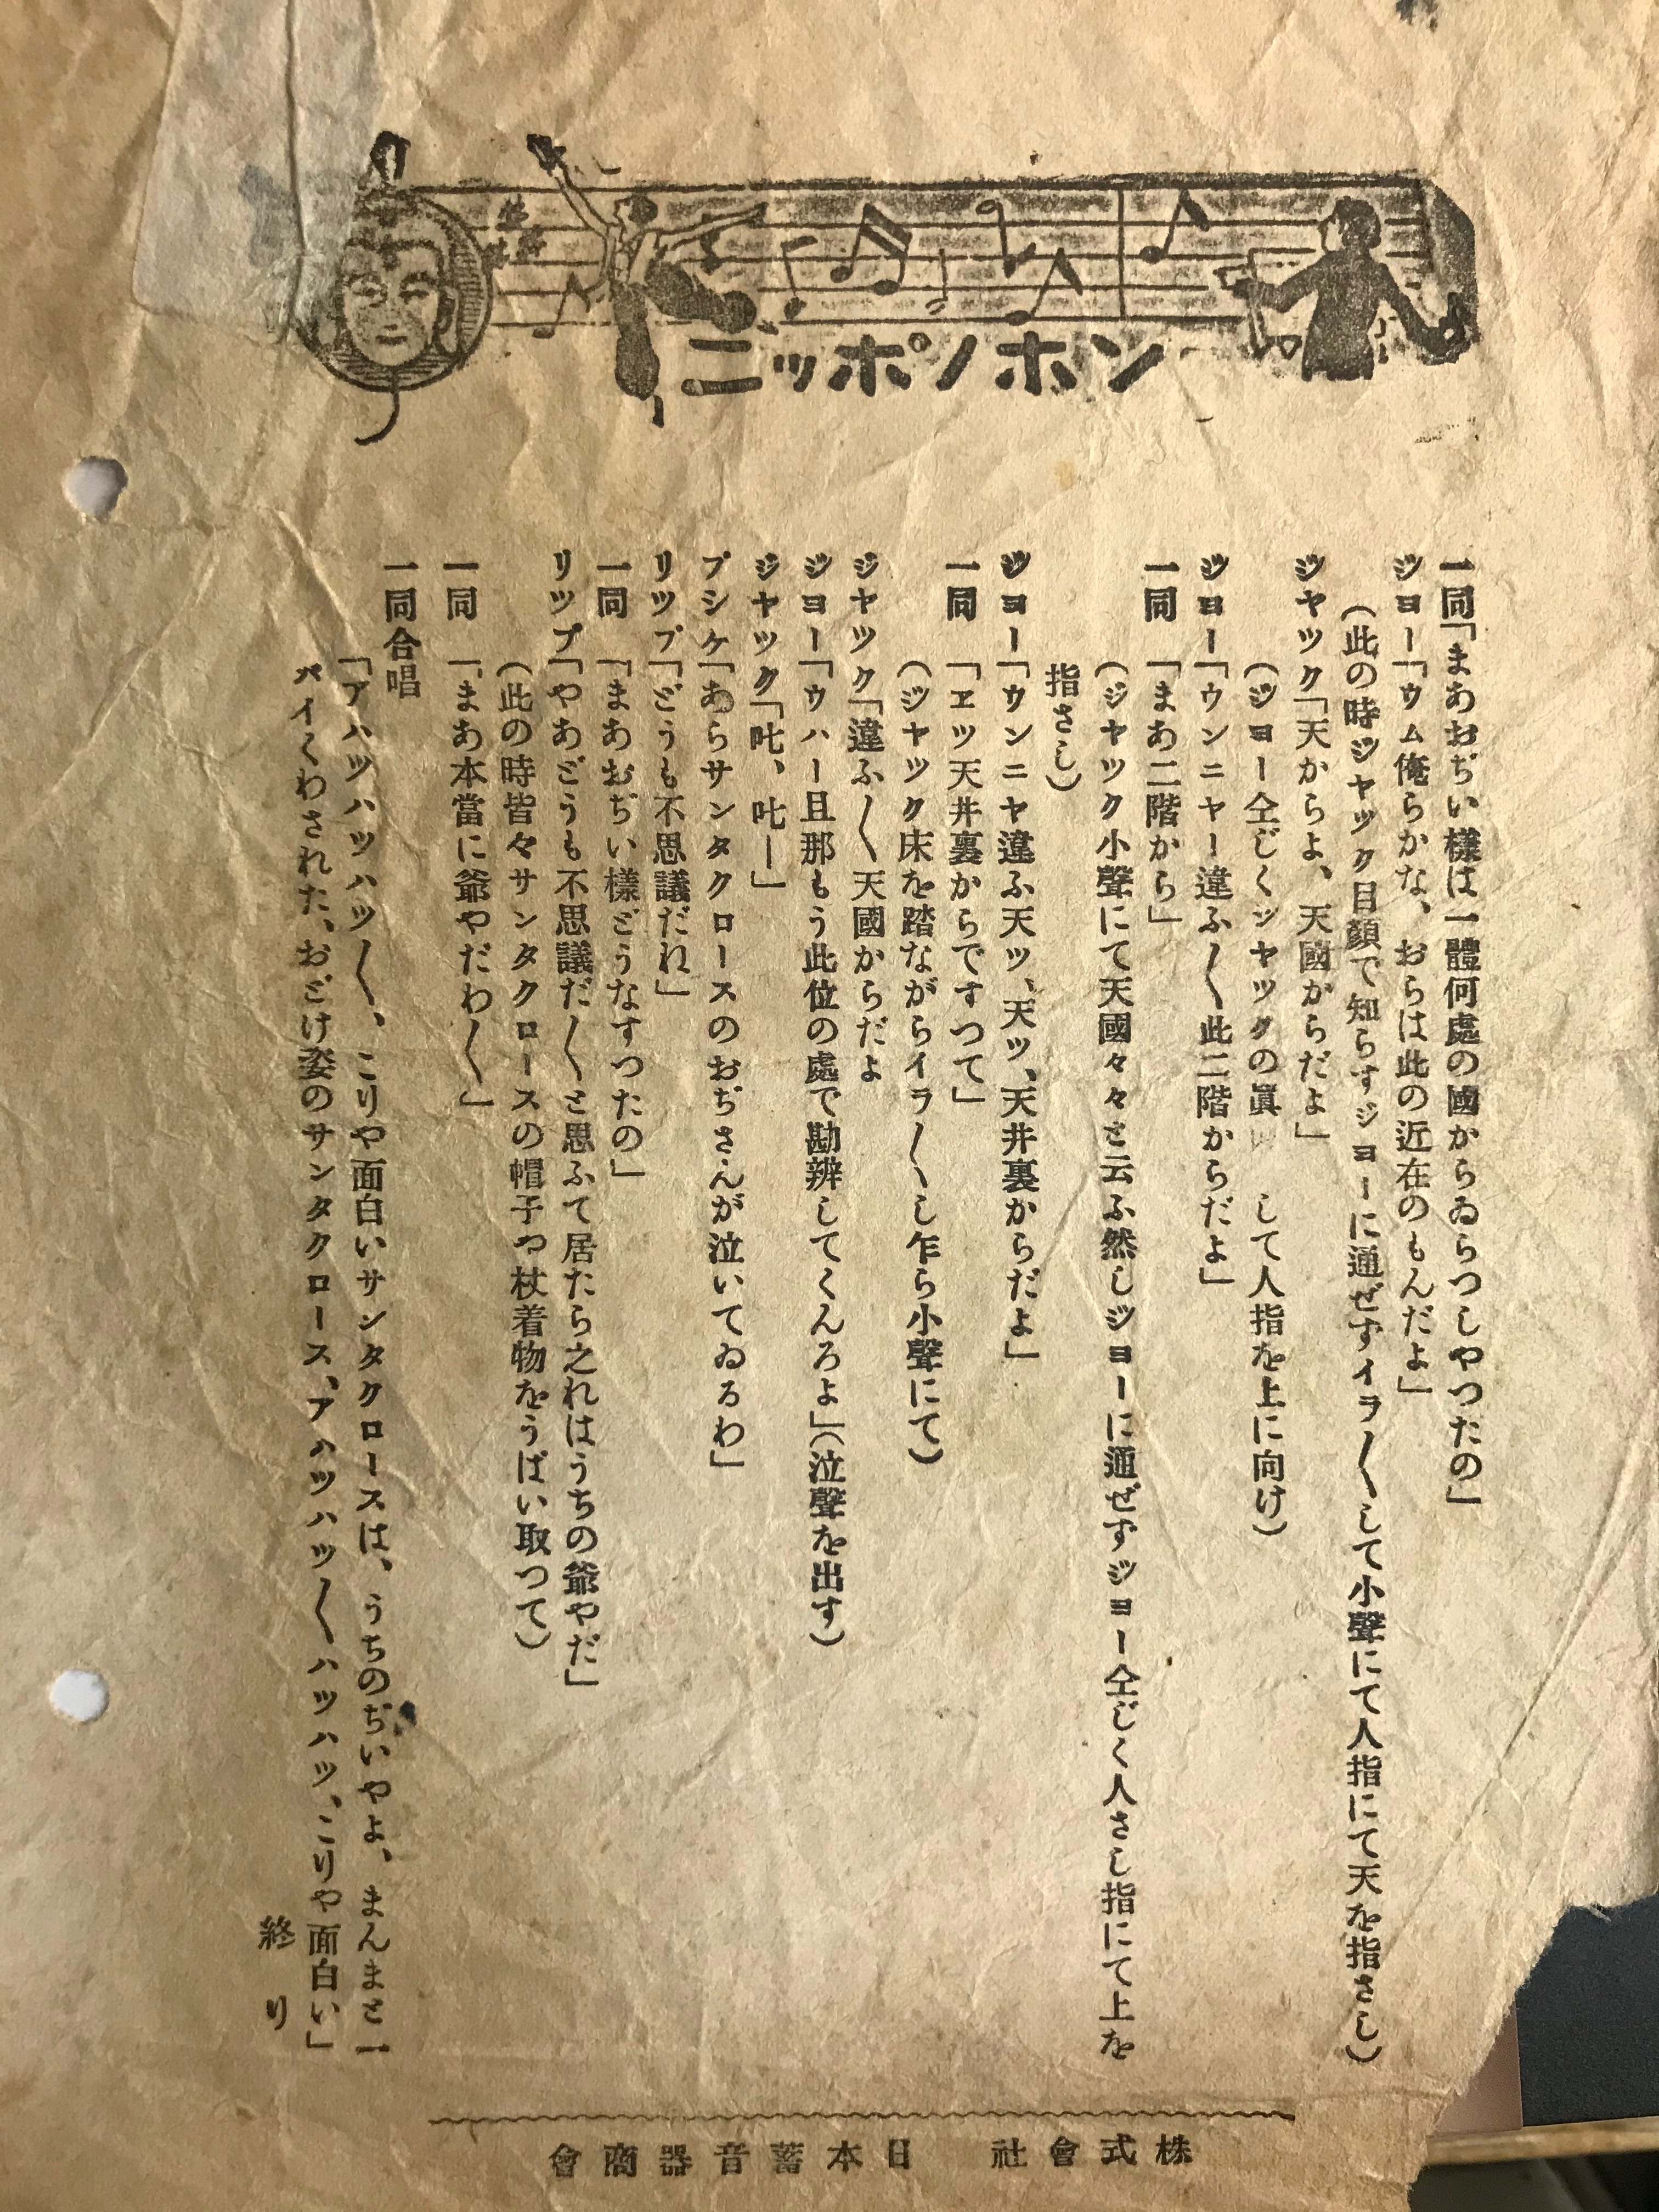 ニッポノホン
一同「まあおぢい樣は一體何處の國からゐらつしやつたの」
ジョー「ウム俺らかな、おらは此の近在のもんだよ」
(此の時ジャック目顏で知らすジョーに通ぜずイラ〱して小聲にて人指にて天を指さし)
ジャック「天からよ、天國からだよ」
(ジョー仝じくジャックの眞　して人指を上に向け)
ジョー「ウンニャー違ふ〱此二階からだよ」
一同「まあ二階から」
(ジャック小聲にて天國々々と云ふ然しジョーに通ぜずジョー仝じく人さし指にて上を
指さし)
ジョー「ウンニヤ違ふ天ッ、天ッ、天井裏からだよ」
一同「ヱッ天井裏からですつて」
(ジャック床を踏ながらイラ〱し乍ら小聲にて)
ジャック「違ふ〱天國からだよ
ジョー「ウハー旦那もう此位の處で勘辨してくんろよ」(泣聲を出す)
ジャック「叱、叱ー」
プシケ「あらサンタクロースのおぢさんが泣いてゐるわ」
リップ「どうも不思議だれ」
一同「まあおぢい樣どうなすつたの」
リップ「やあどうも不思議だ〱と思ふて居たら之れはうちの爺やだ」
(此の時皆々サンタクロースの帽子や杖着物をうばい取つて)
一同「まあ本當に爺やだわ〱」
一同合唱
「アハッハッハッ〱、こりや面白いサンタクロースは、うちのぢいやよ、まんまと一
パイくわされた、おどけ姿のサンタクロース、アハッハッハッ〱ハッハッ、こりや面白い」
終り
株式會社　日本蓄音器商會